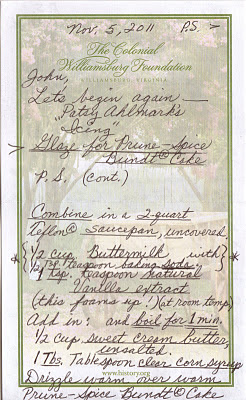 Nov. 5, 2011 P.S. >
The Colonial
Williamsburg Foundation
WILLIAMSBURG, VIRGINIA
John,
Let's begin again —
"Patsy Ahlmark's
Icing
> Glaze for Prune-Spice
Bundt® Cake
P.S. (cont.)
Combine in a 2-quart
Teflon® saucepan, uncovered,
½ cup Buttermilk with
* ½ tsp. teaspoon baking soda. *
1 tsp. teaspoon natural
Vanilla extract
(this foams up!) (at room temp)
Add in: and boil for 1 min.
½ cup sweet cream butter,
unsalted.
1 Tbs. Tablespoon clear corn syrup
Drizzle warm over warm
Prune-Spice Bundt® Cake
www.history.org